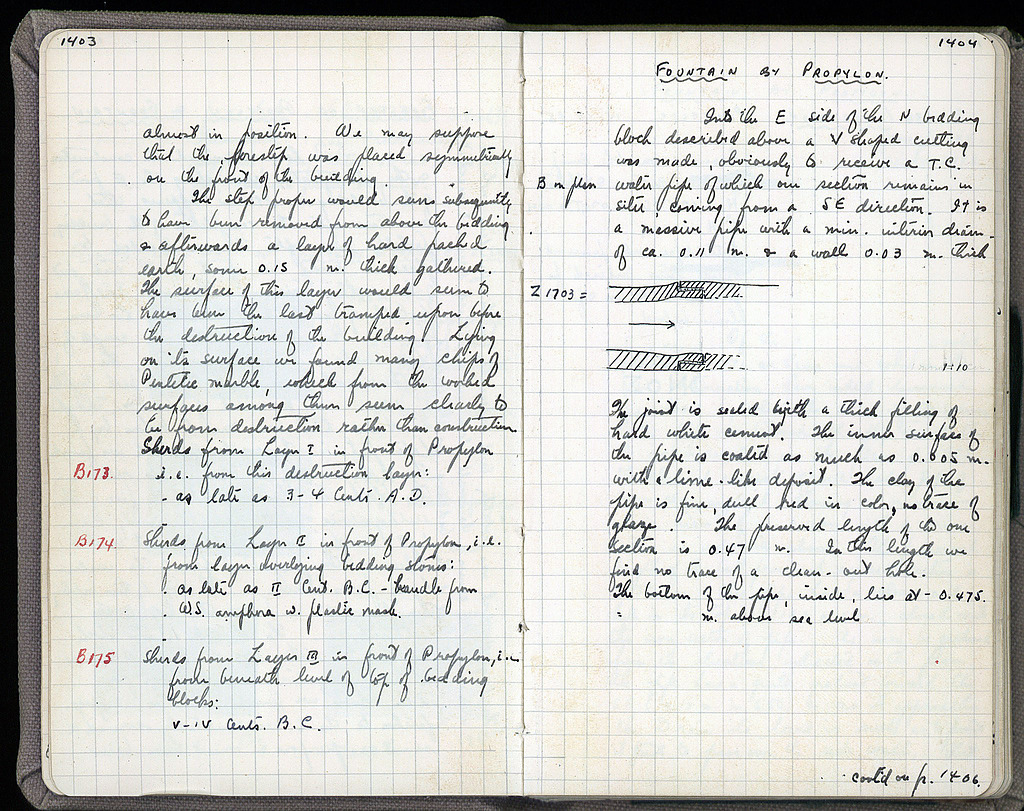 1403
almost in position. We may suppose
that the forestep was placed symmetrically
on the front of the building.
The step proper would seem subsequently
to have been removed from above the bedding
& afterwards a layer of hard packed
earth, some 0.15 m. thick gathered.
The surface of this layer would seem to
have been the last tramped upon before
the destruction of the building. Lying
on its surface we found many chips of
Pentelic marble, which from the worked
surfaces among them seem clearly to
be from destruction rather than construction.
Sherds from Layer I in front of Propylon
B173. i.e. from this destruction layer:
- as late as 3-4 Cents. A.D.
B174. Sherds from Layer II in front of Propylon, i.e.
from layer overlying bedding stones:
. as late as II Cent. B.C. - handle from
. W.S. amphora w. plastic mask.
B175 Sherds from Layer III in front of Propylon, i.e.
from beneath level of top of bedding
blocks:
V-IV Cents. B.C.
1404
FOUNTAIN BY PROPYLON.
Into the E side of the N bedding
block described above a V shaped cutting
was made, obviously to receive a T.C.
B on plan water pipe of which one section remains in
situ, coming from a SE direction. It is
a massive pipe with a min. interior diam.
of ca. 0.11 m. & a wall 0.03 m. thick
Z 1703 =
1:10
The joint is sealed with a thick filling of
hard white cement. The inner surface of
the pipe is coated as much as 0.005 m.
with a lime-like deposit. The clay of the
pipe is fine, dull red in color, no trace of
glaze. The preserved length of the one
section is 0.47 m. In this length we
find no trace of a clean-out hole.
The bottom of the pipe, inside, lies at - 0.475.
" m. above sea level
cont'd on p. 1406.